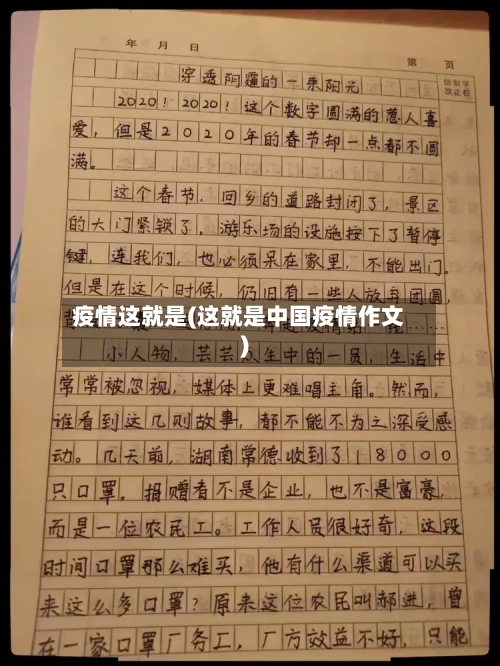 年 月 日
第 页
错别字
改正栏
穿透阴霾的一束阳光
2020！2020！这个数字圆满的惹人喜
爱，但是2020年的春节却一点都不圆
满。
这个春节，回乡的道路封闭了，景区
的大门紧锁了，游乐场的设施按下了暂停
键，连我们，也必须呆在家里，不能出门。
但是在这个时候，仍旧有一些人放弃团圆，
疫情这就是(这就是中国疫情作文
)
小人物，芸芸众生中的一员，生活中
常常被忽视，媒体上更难唱主角。然而，
谁看到这几则故事，都不能不为之深受感
动。几天前，湖南常德收到了18000
只口罩。捐赠者不是企业，也不是富豪，
而是一位农民工。工作人员很好奇，这段
时间口罩那么难买，他有什么渠道可以买
来这么多口罩？原来这位农民叫郝进，曾
在一家口罩厂务工，厂方效益不好，只能